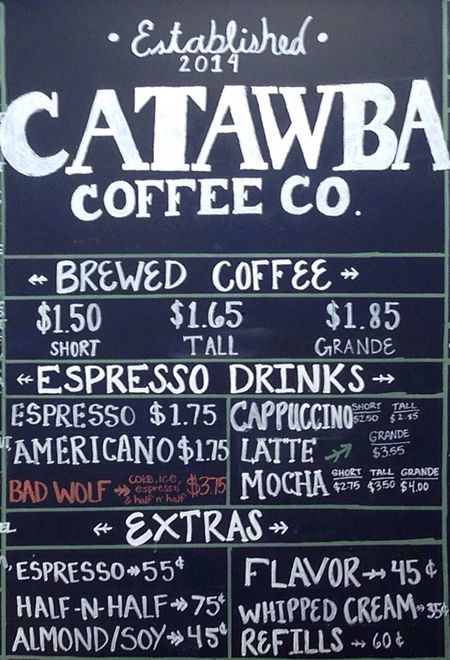 • Established •
2014
CATAWBA
COFFEE CO.
BREWED COFFEE
$1.50 $1.65 $1.85
SHORT TALL GRANDE
ESPRESSO DRINKS
ESPRESSO $1.75
AMERICANO $1.75
BAD WOLF coke, ice, espresso & half n' half $3.75
CAPPUCCINO SHORT $2.50 TALL
LATTE GRANDE $3.55
MOCHA SHORT $2.75 TALL $3.50 GRANDE $4.00
EXTRAS
ESPRESSO 55¢
HALF-N-HALF 75¢
ALMOND/SOY 45¢
FLAVOR 45¢
WHIPPED CREAM 35¢
REFILLS 60¢